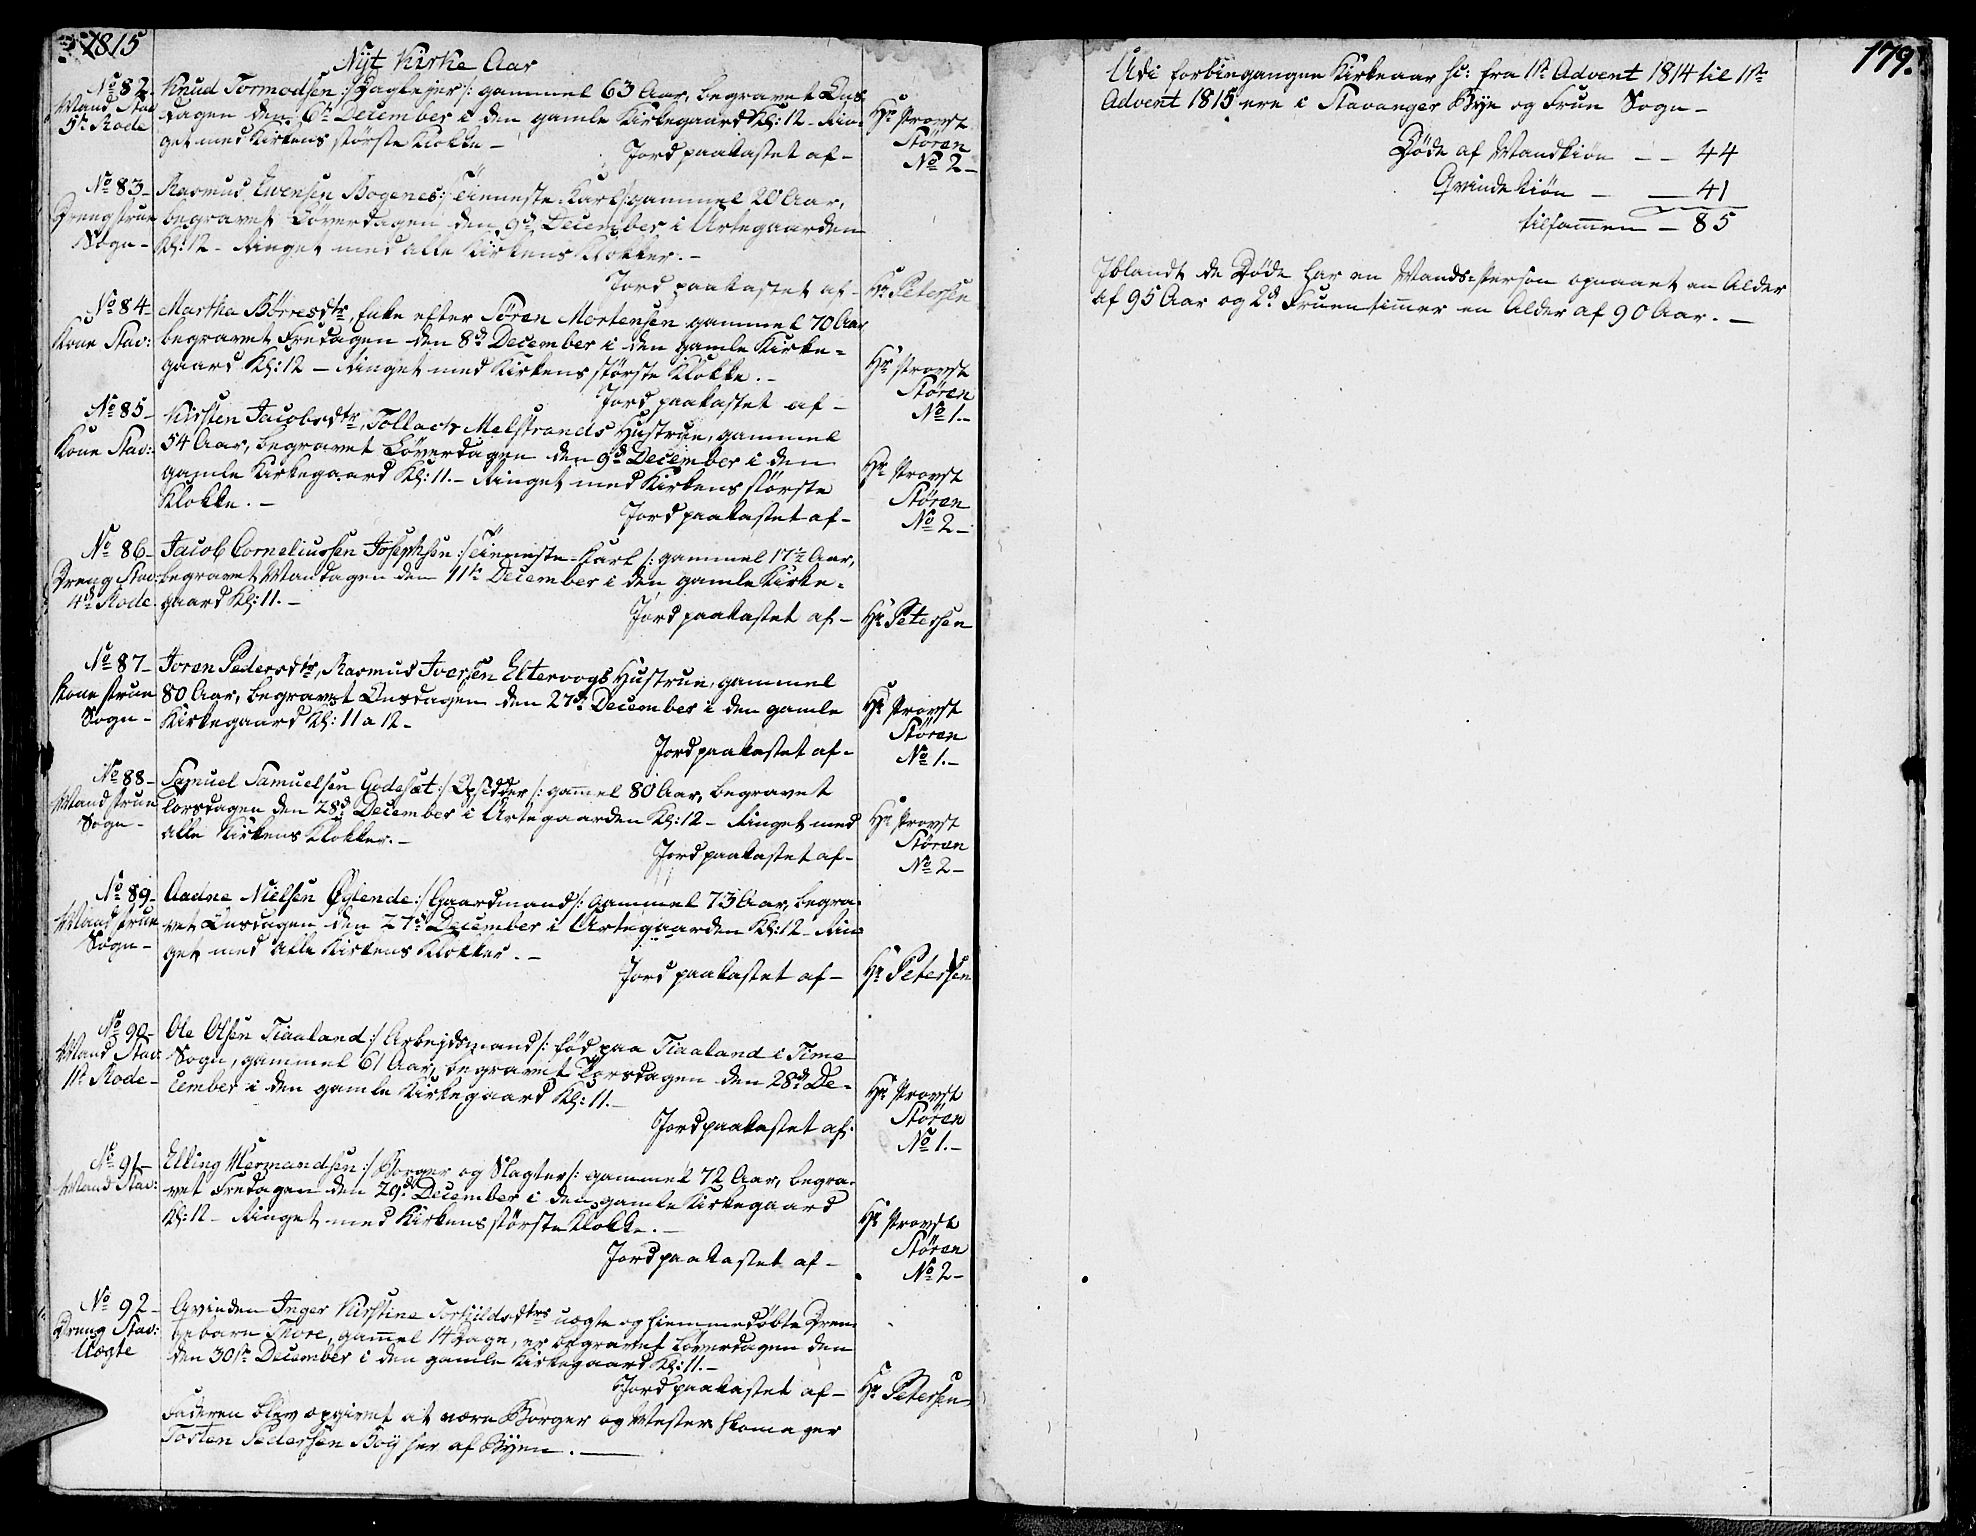 1815
Nÿt Kirke Aar
No 82. Knud Tormodsen :/ Daglejer /: gammel 63 Aar, begravet Ons-
Mand Stav: dagen den 6te December i den gamle Kirkegaard Kl: 12 - Rin-
5te Rode get med Kirkens største Klokke -
Jord paakastet af - Hr Provst Støren No 2 -
No 83 - Rasmus Evensen Bogenes :/ Tienneste-Karl /: gammel 20 Aar,
Dreng Frue begravet Løverdagen den 9de December i Urtegaarden
Sogn - Kl: 12 - Ringet med alle Kirkens Klokker. -
Jord paakastet af - Hr Petersen
No 84 - Martha Børresdtr, Enke efter Søren Mortensen gammel 70 Aar
Kone Stav: begravet Fredagen den 8de December i den gamle Kirke-
gaard Kl: 12 - Ringet med Kirkens største Klokke. -
Jord paakastet af - Hr Provst Støren No 1. -
No 85 - Kirsten Jacobsdtr, Tollack Melstrands Hustrue, gammel
Kone Stav: 54 Aar, begravet Løverdagen den 9de December i den
gamle Kirkegaard Kl: 11. - Ringet med Kirkens største
Klokke. -
Jord paakastet af - Hr Provst Støren No 2 -
No 86 - Jacob Corneliussen Josephsen :/ Tienneste-Karl /: gammel 17½ Aar,
Dreng Stav: begravet Mandagen den 11te December i den gamle Kirke-
4de Rode gaard Kl: 11. -
Jord paakastet af - Hr Petersen
No 87 - Joren Pedersdtr, Rasmus Iversen Eltervogs Hustrue, gammel
Kone Frue 80 Aar, begravet Onsdagen den 27de December i den gamle
Sogn - Kirkegaard Kl: 11 a 12 -
Jord paakastet af - Hr Provst Støren No 1. -
No 88 - Samuel Samuelsen Godeset :/ Opsidder /: gammel 80 Aar, begravet
Mand Frue Torsdagen den 28de December i Urtegaarden Kl: 12 - Ringet med
Sogn - alle Kirkens Klokker. -
Jord paakastet af - Hr Provst Støren No 2 -
No 89 - Aadne Nielsen Øglende :/ Gaardmand /: gammel 73 Aar, begra-
Mand Frue vet Onsdagen den 27de December i Urtegaarden Kl: 12 - Rin-
Sogn - get med alle Kirkens Klokker. -
Jord paakastet af - Hr Petersen
No 90 - Ole Olsen Tiaaland :/ Arbejdsmand /: fød paa Tiaaland i Time
Mand Stav: Sogn, gammel 61 Aar, begravet Torsdagen den 28de De-
11te Rode - cember i den gamle Kirkegaard Kl: 11. -
Jord paakastet af: Hr Provst Støren No 1. -
No 91 - Elling Mermandsen :/ Borger og Slagter /: gammel 72 Aar, begra-
Mand Stav: vet Fredagen den 29de December i den gamle Kirkegaard
Kl: 12 - Ringet med Kirkens største Klokke. -
Jord paakastet af - Hr Provst Støren No 2 -
No 92 - Qvinden Inger Kirstine Torkildsdtrs uægte og hiemmedøbte Dren-
Dreng Stav: gebarn Thore, gammel 14 Dage, er begravet Løverdagen den
Uægte den 30te December i den gamle Kirkegaard Kl: 11. -
Jord paakastet af - Hr Petersen
Faderen blev opgivet at være Borger og Mester Skomager
Tosten Pedersen Boÿ her af Byen. -
179.
Udi forbingangne Kirkeaar sc: fra 1te Advent 1814 til 1te
Advent 1815 ere i Stavanger Bye og Frue Sogn -
Døde af Mandkiøn - - 44
Qvindekiøn - - 41
tilsammen - 85
Iblandt de Døde har en Mands-Person opnaaet en Alder
af 95 Aar og 2de Fruentimmer en Alder af 90 Aar. -